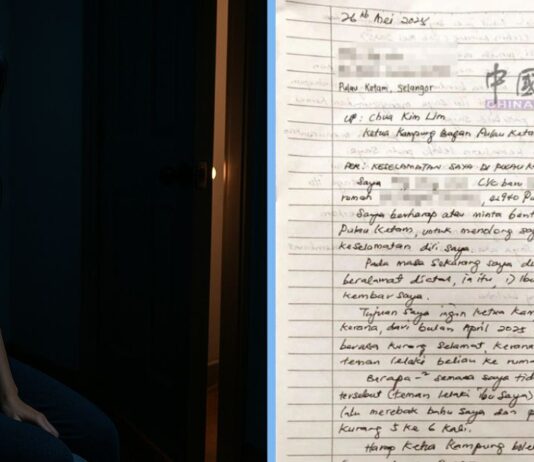 26hb Mei 2025
Pulau Ketam, Selangor
中國
CHINA
UP : Chua Kim Lim
Ketua Kampung Bagan Pulau Keta
PER: KESELAMATAN SAYA DI PULAU
Saya baru
rumah 42940 Pu
Saya berharap atau minta bent
Pulau Ketam, untuk menolong say
keselamatan diri saya.
Pada masa sekarang saya du
beralamat diatas, iaitu, 1) Ibu
kembar saya.
Tujuan saya ingin Ketua Kam
kerana, dari bulan April 2025
berasa kurang selamat, kerana
teman lelaki beliau ke rumah
Berapa-2 semasa saya tid
tersebut (teman lelaki ibu saya)
lalu merebak bahu saya dan p
kurang 5 ke 6 kali.
Harap Ketua Kampung boleh